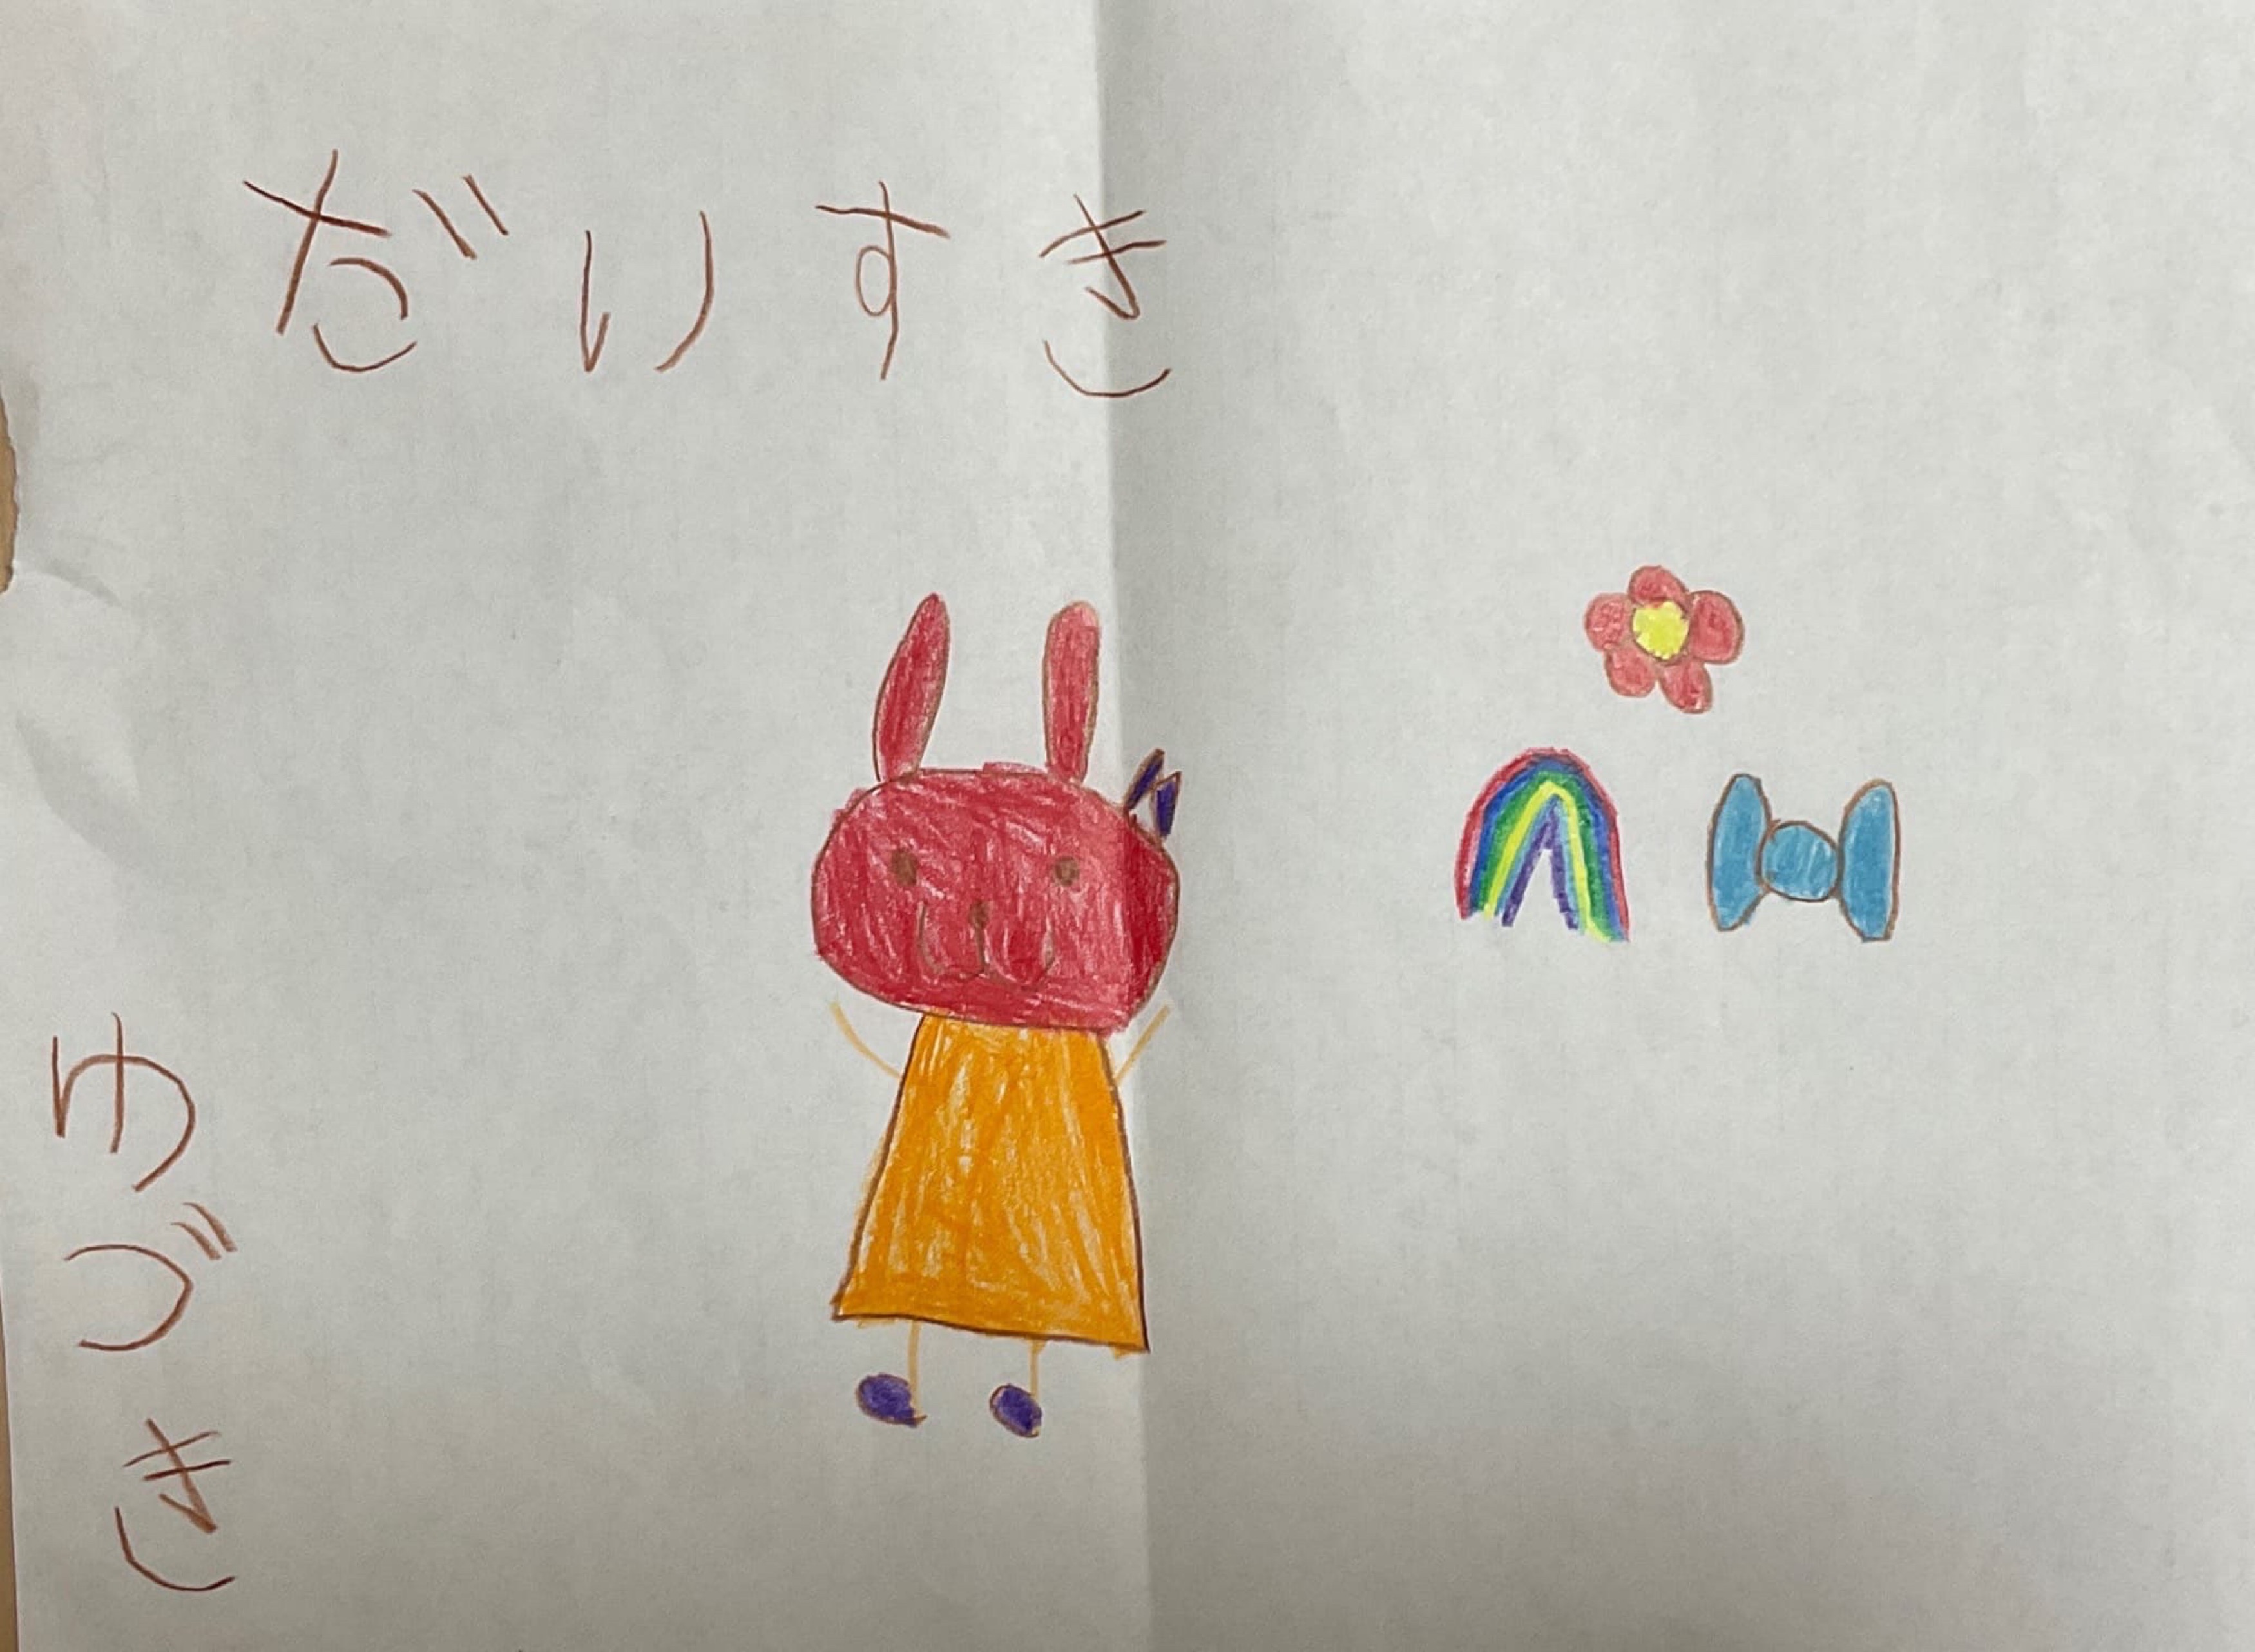 だいすき
ゆづき